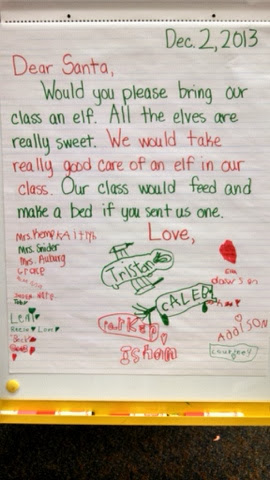 Dec. 2, 2013
Dear Santa,
Would you please bring our
class an elf. All the elves are
really sweet. We would take
really good care of an elf in our
class. Our class would feed and
make a bed if you sent us one.
Love,
Mrs. Kemp
Kaitlyn
Mrs. Snider
Mrs. Auburg
Grace
Tristan
Dawson
CALEB
Leni
Parker
AddiSON
Isham
courtney